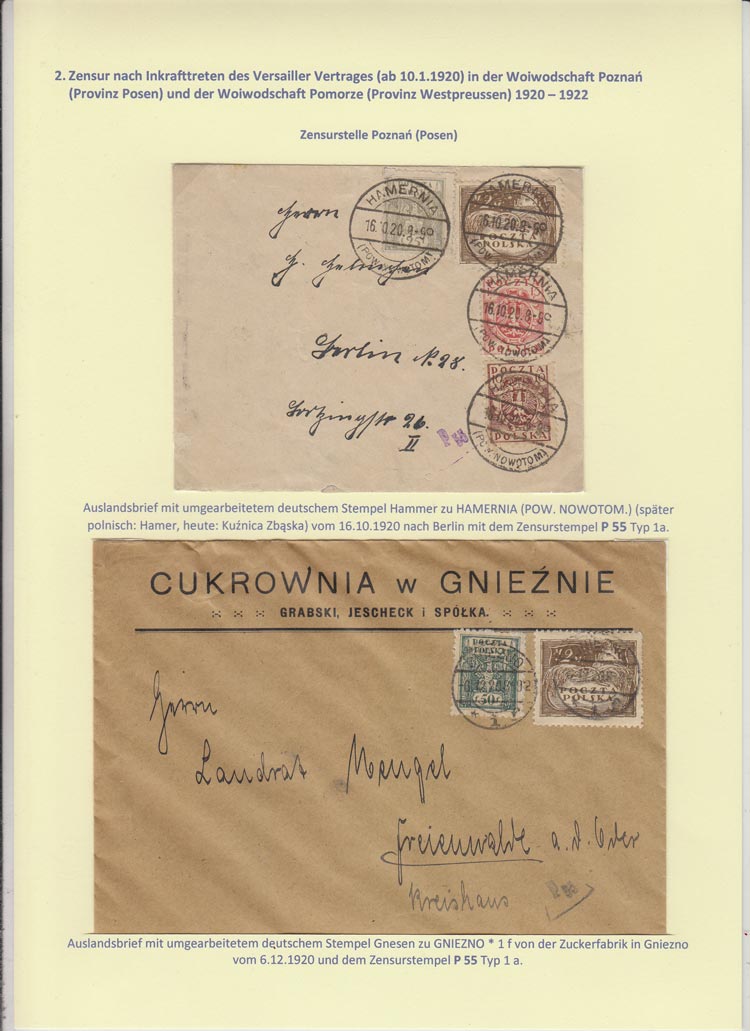 2. Zensur nach Inkrafttreten des Versailler Vertrages (ab 10.1.1920) in der Woiwodschaft Poznań
(Provinz Posen) und der Woiwodschaft Pomorze (Provinz Westpreussen) 1920 – 1922
Zensurstelle Poznań (Posen)
HAMERNIA
16.10.20.8-9⁰
(POW. NOWOTOM)
HAMERNIA
16.10.20.8-9⁰
POCZTA
POLSKA
Herrn
HAMERNIA
16.10.20.8-9⁰
(POW. NOWOTOM)
Berlin N 28.
POCZTA
10 10
POLSKA
HAMERNIA
(POW. NOWOTOM)
26.
II
P 55
Auslandsbrief mit umgearbeitetem deutschem Stempel Hammer zu HAMERNIA (POW. NOWOTOM.) (später
polnisch: Hamer, heute: Kuźnica Zbąska) vom 16.10.1920 nach Berlin mit dem Zensurstempel P 55 Typ 1a.
CUKROWNIA w GNIEŹNIE
GRABSKI, JESCHECK i SPÓŁKA.
POCZTA
POLSKA
50
2
POCZTA
POLSKA
Herrn
Landrat Mengel
Freienwalde a. d. Oder
Kreishaus
P 55
Auslandsbrief mit umgearbeitetem deutschem Stempel Gnesen zu GNIEZNO * 1 f von der Zuckerfabrik in Gniezno
vom 6.12.1920 und dem Zensurstempel P 55 Typ 1 a.